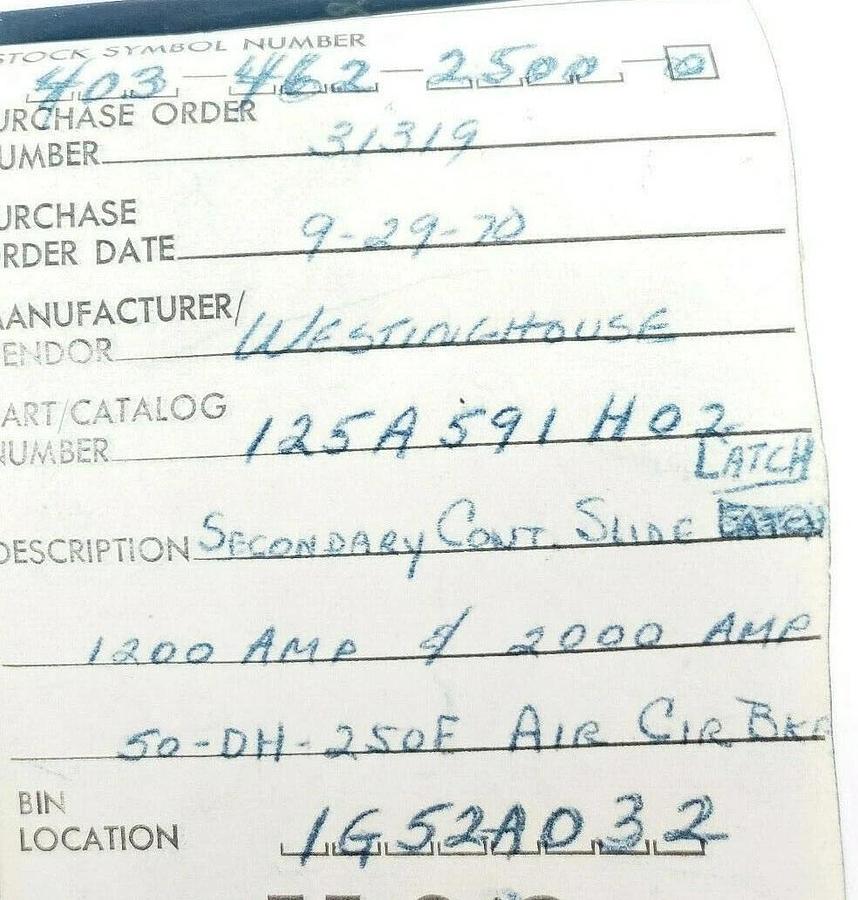 STOCK SYMBOL NUMBER
403-462-2500-0
URCHASE ORDER
UMBER 31319
URCHASE
RDER DATE 9-29-70
ANUFACTURER/
ENDOR WESTINGHOUSE
ART/CATALOG
UMBER 125A591H02
LATCH
DESCRIPTION SECONDARY CONT. SLIDE
1200 AMP & 2000 AMP
50-DH-250E AIR CIR BKR
BIN
LOCATION 1G52A032